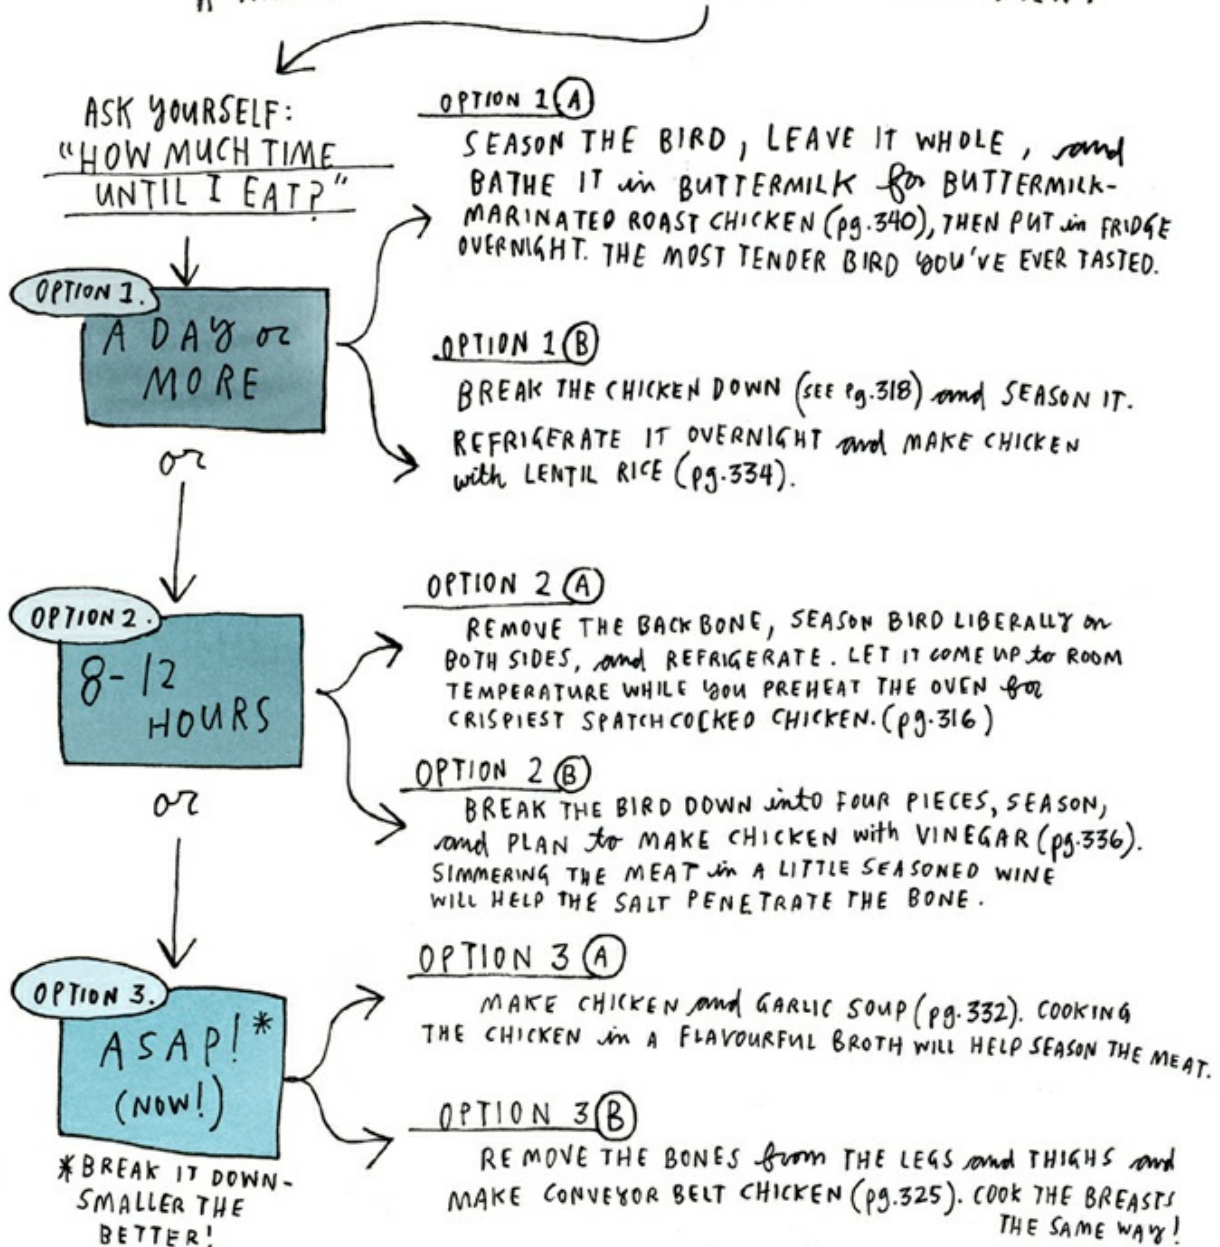 ASK YOURSELF:
"HOW MUCH TIME
UNTIL I EAT?"
OPTION 1.
A DAY or
MORE
OPTION 1 A
SEASON THE BIRD, LEAVE IT WHOLE, and
BATHE IT in BUTTERMILK for BUTTERMILK-
MARINATED ROAST CHICKEN (pg. 340), THEN PUT in FRIDGE
OVERNIGHT. THE MOST TENDER BIRD YOU'VE EVER TASTED.
OPTION 1 B
BREAK THE CHICKEN DOWN (SEE pg. 318) and SEASON IT.
REFRIGERATE IT OVERNIGHT and MAKE CHICKEN
with LENTIL RICE (pg. 334).
or
OPTION 2.
8-12
HOURS
OPTION 2 A
REMOVE THE BACKBONE, SEASON BIRD LIBERALLY on
BOTH SIDES, and REFRIGERATE. LET IT COME UP to ROOM
TEMPERATURE WHILE YOU PREHEAT THE OVEN for
CRISPIEST SPATCHCOCKED CHICKEN. (pg. 316)
OPTION 2 B
BREAK THE BIRD DOWN into FOUR PIECES, SEASON,
and PLAN to MAKE CHICKEN with VINEGAR (pg. 336).
SIMMERING THE MEAT in A LITTLE SEASONED WINE
WILL HELP THE SALT PENETRATE THE BONE.
or
OPTION 3.
ASAP!*
(NOW!)
*BREAK IT DOWN-
SMALLER THE
BETTER!
OPTION 3 A
MAKE CHICKEN and GARLIC SOUP (pg. 332). COOKING
THE CHICKEN in A FLAVOURFUL BROTH WILL HELP SEASON THE MEAT.
OPTION 3 B
REMOVE THE BONES from THE LEGS and THIGHS and
MAKE CONVEYOR BELT CHICKEN (pg. 325). COOK THE BREASTS
THE SAME WAY!